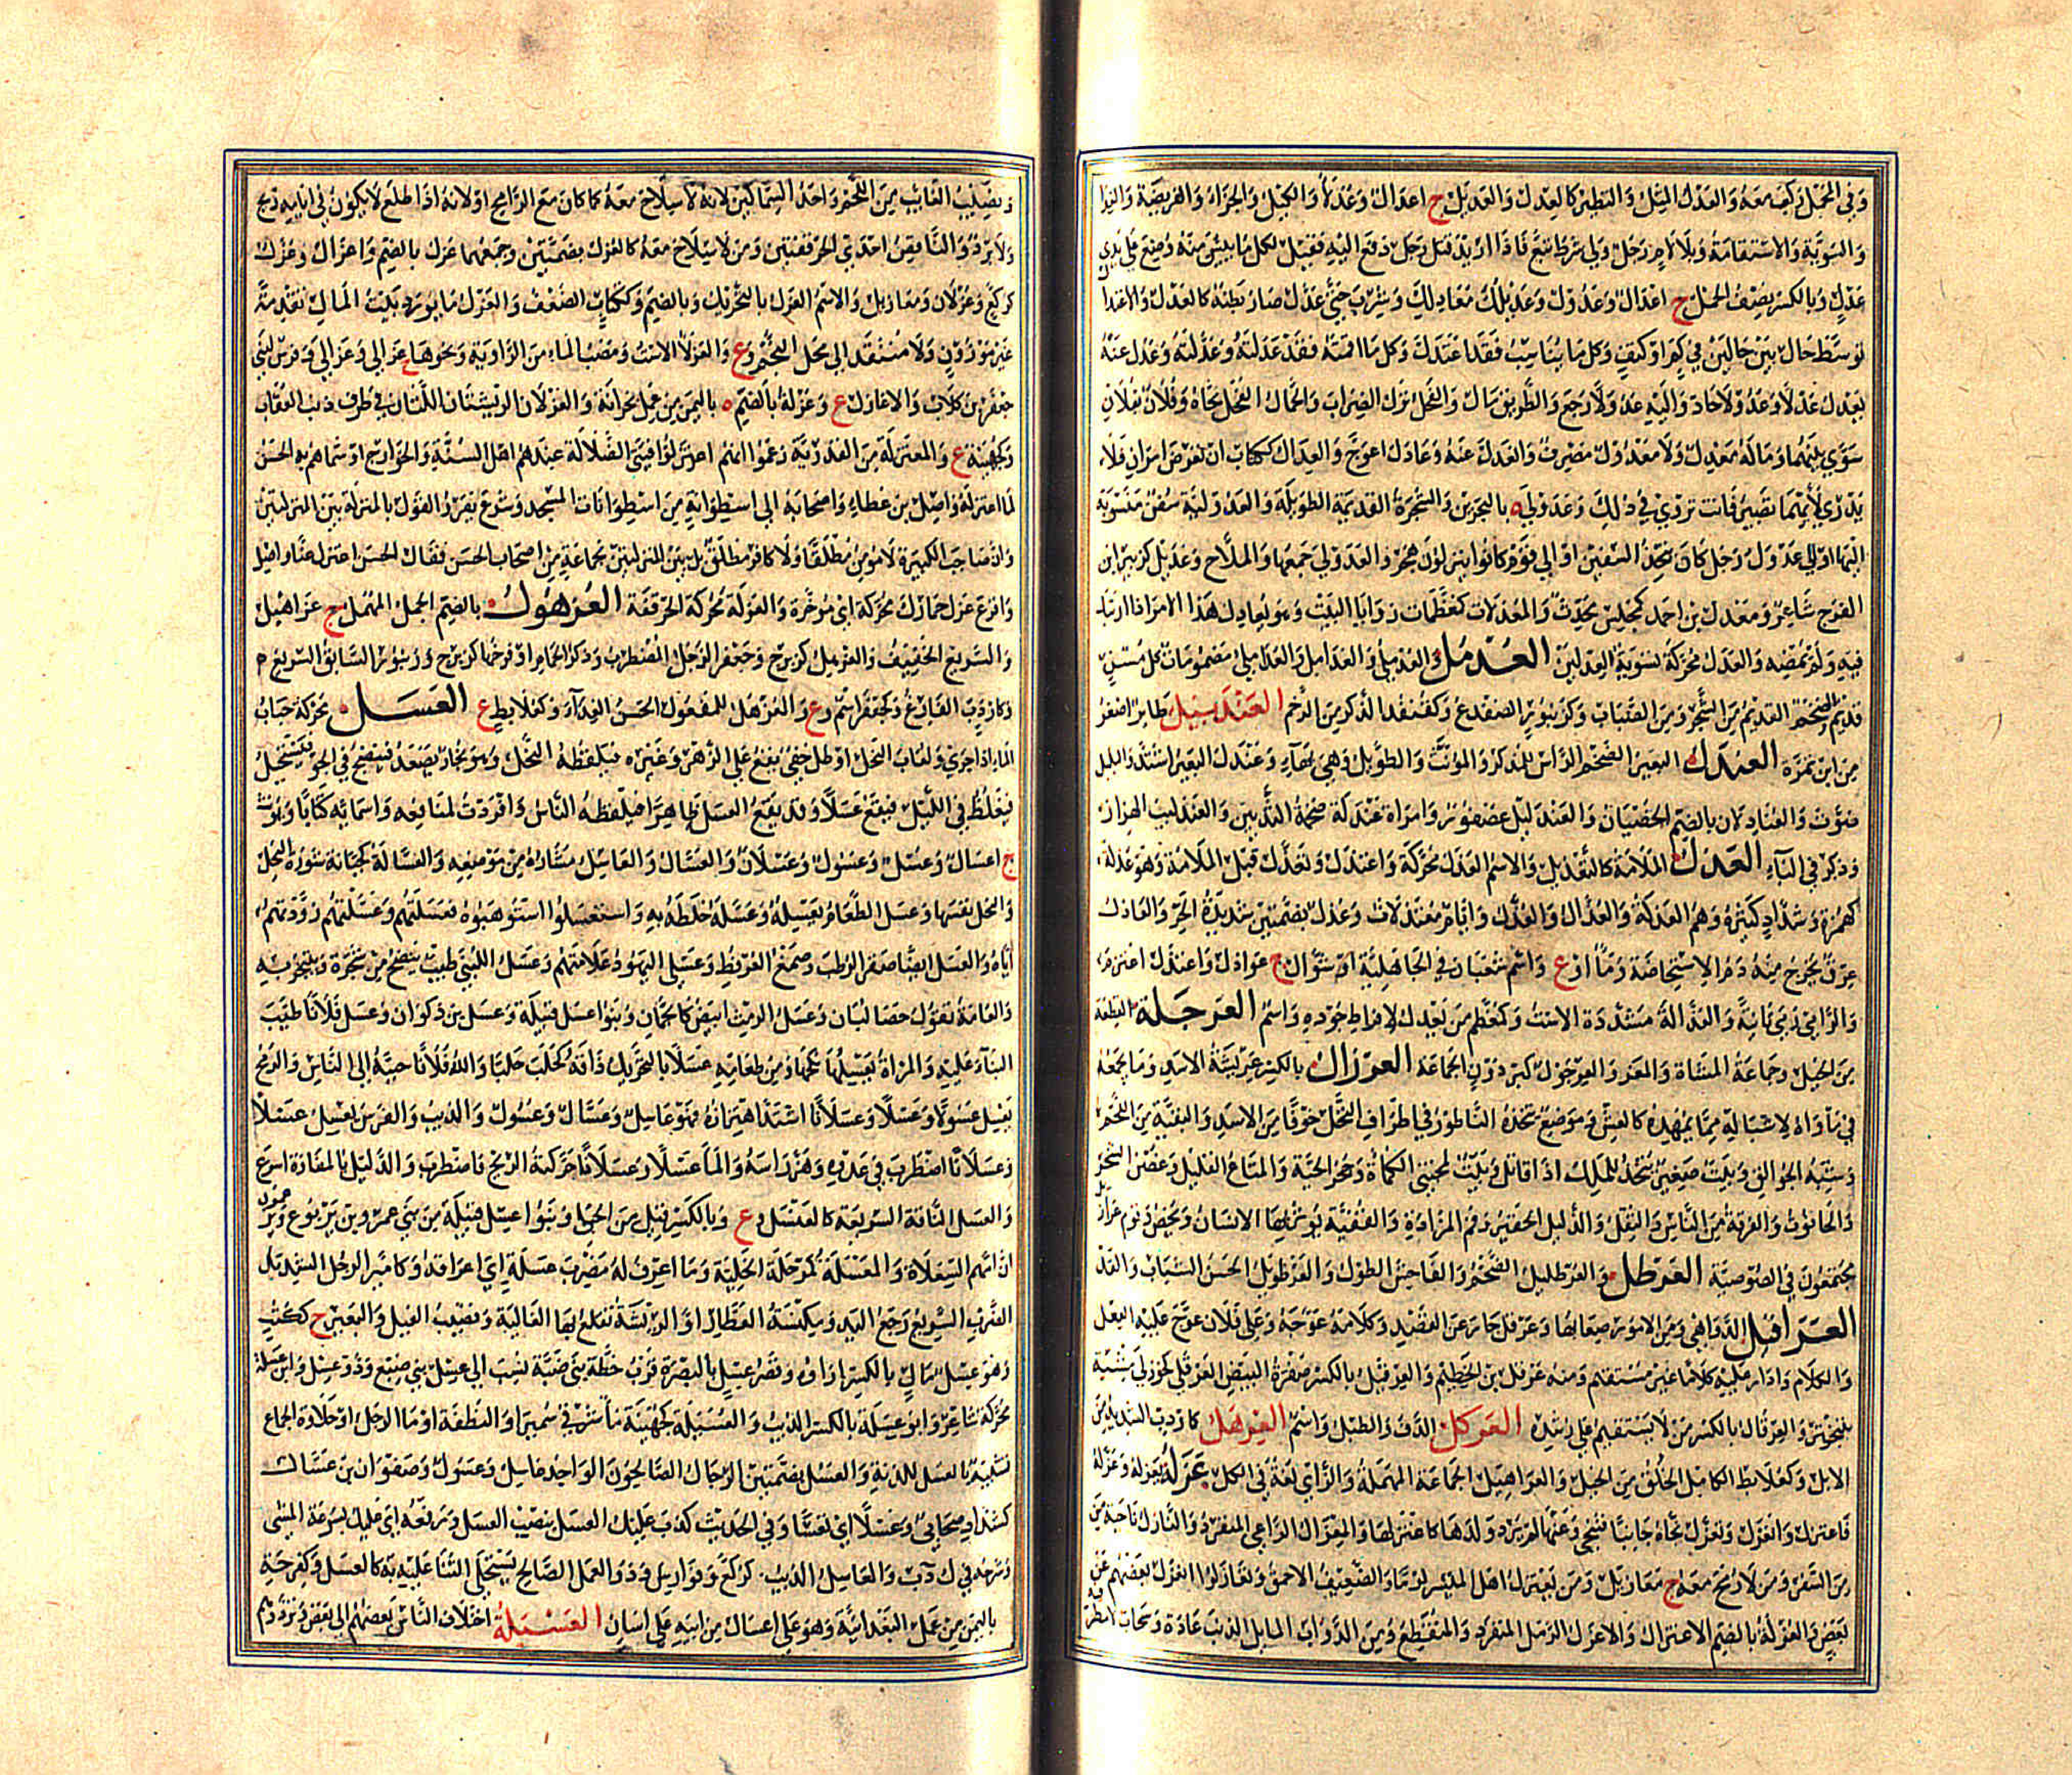 وفي المحمل ركب معه والعدل المثل والنظير كالعدل والعديل ج اعدال وعدلاء والكيل والجزاء والفريضة والفداء
والسوية والاستقامة وبلا لام رجل ولي شرط تبع فاذا اريد قتل رجل دفع اليه فقيل لكل ما يئس منه وضع على يدي
عدل وبالكسر نصف الحمل ج اعدال وعدول وعديلك معادلك وشرب حتى عدل صار بطنه كالعدل والاعتدال
توسط حال بين حالين في كم او كيف وكل ما تناسب فقد اعتدل وكل ما اقمته فقد عدلته وعدّلته وعدل عنه
يعدل عدلا وعدولا حاد واليه عدولا رجع والطريق مال والفحل ترك الضراب والجمال الفحل نحاه وفلانا بفلان
سوى بينهما وما له معدل ولا معدول مصرف وانعدل عنه وعادل اعوج والعدال ككتاب ان تعرض امران فلا
تدري لايهما تصير فانت تروي في ذلك وعدولى ه بالبحرين والشجرة القديمة الطويلة والعدولية سفن منسوبة
اليها او الى عدول رجل كان يتخذ السفن او الى قوم كانوا ينزلون هجر والعدولي جمعها والملاح وعديل كزبير ابن
الفرخ شاعر ومعدل بن احمد كمجلس محدث والمعدلات كمعظمات زوايا البيت وهو يعادل هذا الامر اذا ارتبك
فيه ولم يمضه والعدل محركة تسوية العدلين العدمل والعدملي والعدامل والعداملي مضمومات كل مسن
قديم والضخم القديم من الشجر ومن الضباب وكزنبور الضفدع وكقنفذ الذكر من الرخم العندبيل طائر اصغر
من ابن تمرة العندل البعير الضخم الراس للمذكر والمؤنث والطويل وهي بهاء وعندل البعير اشتد والبلبل
صوت والعنادلان بالضم الخصيتان والعندليل عصفور وامراة عندلة ضخمة الثديين والعندليب الهزار
وذكر في الباء العذل الملامة كالتعذيل والاسم العذل محركة واعتذل وتعذل قبل الملامة وهو عذلة
كهمزة وشداد كثيره وهم العذلة والعذال والعذل وايام معتذلات وعذل بضمتين شديدة الحر والعاذل
عرق يخرج منه دم الاستحاضة وماء او ع واسم شعبان في الجاهلية او شوال ج عواذل واعتذل اعتزم
والرامي رمى ثانية والعذالة مشددة الاست وكمعظم من يعذل لافراط جوده واسم العرجلة القطعة
من الخيل وجماعة المشاة والمعز والعرجول كبرذون الجماعة العرزال بالكسر عريسة الاسد وما يجمعه
في ماواه لاشباله مما يمهده كالعش وموضع يتخذه الناطور في اطراف النخل خوفا من الاسد والبقية من اللحم
وشبه الجوالق وبيت صغير يتخذ للملك اذا قاتل وبيت لمجتني الكماة وجحر الحية والمتاع القليل وغصن الشجر
والحانوت والفرقة من الناس والثقل والذليل الحقير وفم المزادة
يجتمعون في اللصوصية العرطل والعرطليل الضخم والفاحش الطول والعرطويل الحسن الشباب والقد
العراقيل الدواهي ومن الامور صعابها وعرقل جار عن القصد وكلامه عوجه وعلى فلان عوج عليه الفعل
والكلام وادار عليه كلاما غير مستقيم ومنه عرقل بن الخطيم والعرقيل بالكسر صفرة البيض العرقلى كخوزلى مشية
بتبختر والعرقال بالكسر من لا يستقيم على رشده العركل الدف والطبل واسم العرهل كاردب الشديد من
الابل وكعلابط الكامل الخلق من الخيل والعراهيل الجماعة المهملة والزاي لغة في الكل عزله يعزله وعزله
فاعتزل وانعزل وتعزل نحاه جانبا فتنحى وعنها لم يرد ولدها كاعتزلها والمعزال الراعي المنفرد والنازل ناحية من
من السفر ومن لا رمح معه ج معازيل ومن يعتزل اهل الميسر لؤما والضعيف الاحمق وتعازلوا انعزل بعضهم عن
بعض والعزلة بالضم الاعتزال والاعزل الرمل المنفرد والمنقطع ومن الدواب المايل الذنب عادة وسحاب لا مطر فيه
ونصيب الغائب من اللحم واحد السماكين لانه لا سلاح معه كما كان مع الرامح او لانه اذا طلع لا يكون في ايامه ريح
ولا برد والناقص احدى الحرقفتين ومن لا سلاح معه كالعزل بضمتين وجمعهما عزل بالضم واعزال وعزل
كركع وعزلان ومعازيل والاسم العزل بالتحريك وبالضم وككتاب الضعف والعزل ما يورد بيت المال تقدمة
غير موزون ولا منتقد الى محل النجم وع والعزلاء الاست ومصب الماء من الراوية ونحوها ج عزالي وعزالى وفرس لبني
جعفر بن كلاب والاعازل ع وعزلة بالضم ه باليمن من عمل بحرانة والعزلان الريشتان اللتان في طرف ذنب العقاب
وكجهينة ع والمعتزلة من القدرية زعموا انهم اعتزلوا فئتي الضلالة عندهم اهل السنة والخوارج او سماهم به الحسن
لما اعتزله واصل بن عطاء واصحابه الى اسطوانة من اسطوانات المسجد وشرع يقرر القول بالمنزلة بين المنزلتين
وان صاحب الكبيرة لا مومن مطلقا ولا كافر مطلق بل بين المنزلتين كجماعة من اصحاب الحسن فقال الحسن اعتزل عنا واصل
واقرع عزل حمارك محركة اي موخره والعزلة محركة الحرقفة العزهول بالضم الجمل المهمل ج عزاهيل
والسريع الخفيف والعزهل كزبرج وجعفر الرجل المضطرب وذكر الحمام او فرخها كزبرج وزنبور السابق السريع م
وكاردب الفارغ وكجعفر اسم وع والمعزهل للمفعول الحسن الغذاء وكعلابط ع العسل محركة حباب
الماء اذا جرى ولعاب النحل او طل خفي يقع على الزهر وغيره فيلقطه النحل وهو بخار يصعد فينضج في الجو فيستحيل
فيغلظ في الليل فيقع عسلا وقد يقع العسل ظاهرا فيلقطه الناس وافردت لمنافعه واسمائه كتابا ويؤنث
ج اعسال وعسل وعسول وعسلان والعسال والعاسل مشتاره من موضعه والعسالة كجبانة شورة النحل
والنحل نفسها وعسل الطعام يعسله وعسله خلطه به واستعسلوا استوهبوه فعسلتهم وعسّلتهم زودتهم
اياه والعسل ايضا صقر الرطب وصمغ العرفط وعسلي اليهود علامتهم وعسل اللبنى طيب ينضح من شجرة ويتبخر به
والعامة تقول حصا لبان وعسل الرمث ابيض كالجمان وبنو عسل قبيلة وعسل بن ذكوان وعسل فلانا طيب
الثناء عليه والمراة يعسلها نكحها ومن طعامه عسلا بالتحريك ذاقه كحلب حلبا والله فلانا حببه الى الناس والرمح
يعسل عسولا وعسلا وعسلانا اشتد اهتزازه فهو عاسل وعسال وعسول والذيب والفرس يعسل عسلا
وعسلانا اضطرب في عدوه وهز راسه والماء عسلا وعسلانا حركته الريح فاضطرب والدليل بالمفازة اسرع
والعسل الناقة السريعة كالعنسل وع وبالكسر قبيل من الجن وبنو عسل قبيلة من بني عمرو بن يربوع ويزعمون
ان امهم السعلاة والمعسلة كمرحلة الخلية وما اعرف له مضرب عسلة اي اعراقه وكامير الرجل الشديد
الضرب السريع رجع اليد ومكنسة العطار او الريشة تقلع بها الغالية وقضيب الفيل والبعير ج ككتب
وهو عسل مال بالكسر ازاؤه وقصر عسل بالبصرة قرب خطة بني ضبة نسب الى عسل بني صبيغ وذو عسل وابن عسلة
محركة شاعر وابو عسلة بالكسر الذيب والعسيلة كجهينة ماء شرقي سميراء والنطفة او ماء الرجل او حلاوة الجماع
تشبيه بالعسل للذته والعسل بضمتين الرجال الصالحون الواحد عاسل وعسول وصفوان بن عسال
كشداد صحابي وعسلا اي تعسا وفي الحديث كذب عليك العسل بنصب العسل ورفعه اي عليك بسرعة المشي
وشرحه في ك ذ ب والعاسل الذيب كركع وفوارس وذو العمل الصالح يستحلى الثناء عليه به كالعسل وكفرحة
باليمن من عمل البعدانية وهو على اعسال من ابيه على اسان العسبلة اختلاف الناس بعضهم الى بعض وترددهم